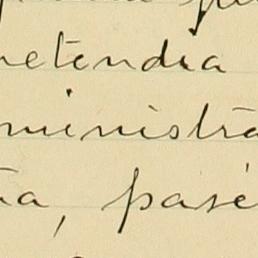 retendia
ministra
ia, pasé